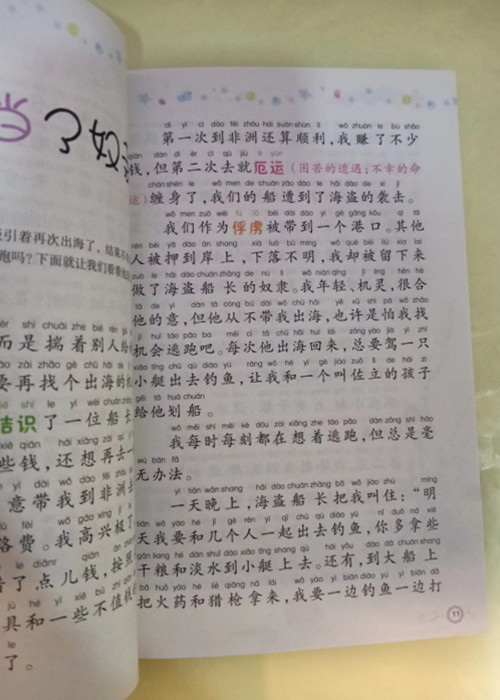 当了奴
吸引着再次出海了，结果不
跑吗？下面就让我们看看他
而是揣着别人给
要再找个出海的
结识了一位船
些钱，还想再去一
意带我到非洲去
路费。我高兴极了
了点儿钱，按照
具和一些不值钱
了。
第一次到非洲还算顺利，我赚了不少
钱，但第二次去就厄运（困苦的遭遇；不幸的命
运）缠身了，我们的船遭到了海盗的袭击。
我们作为俘虏被带到一个港口。其他
人被押到岸上，下落不明，我却被留下来
做了海盗船长的奴隶。我年轻、机灵，很合
他的意，但他从不带我出海，也许是怕我找
机会逃跑吧。每次他出海回来，总要驾一只
小艇出去钓鱼，让我和一个叫佐立的孩子
给他划船。
我每时每刻都在想着逃跑，但总是毫
无办法。
一天晚上，海盗船长把我叫住：“明
天我要和几个人一起出去钓鱼，你多拿些
干粮和淡水到小艇上去。还有，到大船上
把火药和猎枪拿来，我要一边钓鱼一边打
11